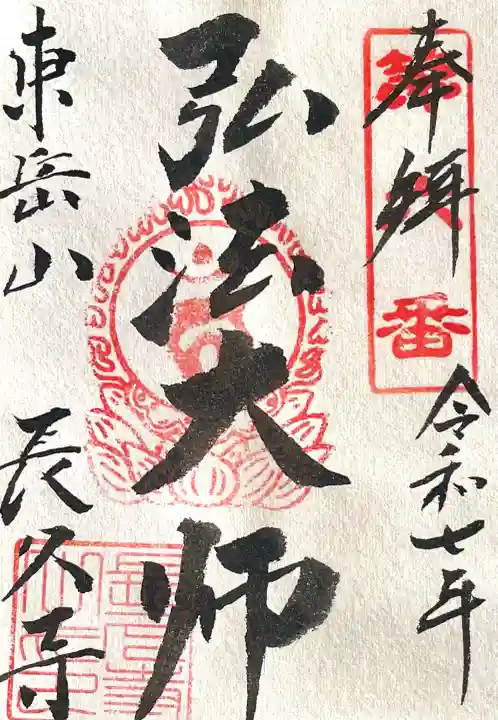 奉拝
令和七年
弘法大師
東岳山 長久寺